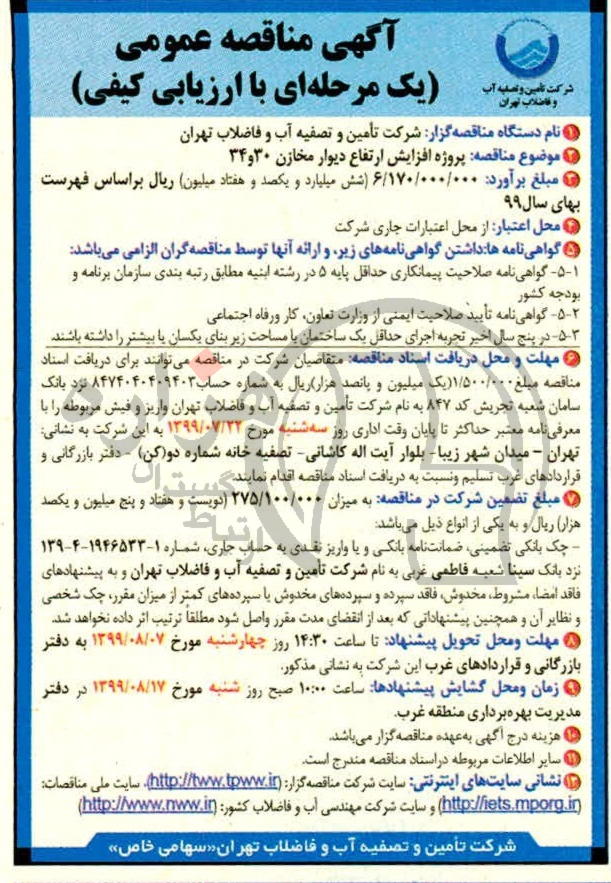 آگهی مناقصه عمومی
(یک مرحله‌ای با ارزیابی کیفی)
شرکت تأمین و تصفیه آب
و فاضلاب تهران
۱ نام دستگاه مناقصه‌گزار: شرکت تأمین و تصفیه آب و فاضلاب تهران
۲ موضوع مناقصه: پروژه افزایش ارتفاع دیوار مخازن ۳۰و۳۴
۳ مبلغ برآورد: ۶/۱۷۰/۰۰۰/۰۰۰ (شش میلیارد و یکصد و هفتاد میلیون) ریال براساس فهرست
بهای سال۹۹
۴ محل اعتبار: از محل اعتبارات جاری شرکت
۵ گواهی‌نامه ها:داشتن گواهی‌نامه‌های زیر، و ارائه آنها توسط مناقصه‌گران الزامی می‌باشد:
۵-۱- گواهی‌نامه صلاحیت پیمانکاری حداقل پایه ۵ در رشته ابنیه مطابق رتبه بندی سازمان برنامه و
بودجه کشور
۵-۲- گواهی‌نامه تأیید صلاحیت ایمنی از وزارت تعاون، کار ورفاه اجتماعی
۵-۳- در پنج سال اخیر تجربه اجرای حداقل یک ساختمان با مساحت زیر بنای یکسان یا بیشتر را داشته باشند.
۶ مهلت و محل دریافت اسناد مناقصه: متقاضیان شرکت در مناقصه می‌توانند برای دریافت اسناد
مناقصه مبلغ۱/۵۰۰/۰۰۰(یک میلیون و پانصد هزار)ریال به شماره حساب۸۴۷۴۰۴۰۴۰۹۴۰۳ نزد بانک
سامان شعبه تجریش کد ۸۴۷ به نام شرکت تأمین و تصفیه آب و فاضلاب تهران واریز و فیش مربوطه را با
معرفی‌نامه معتبر حداکثر تا پایان وقت اداری روز سه‌شنبه مورخ ۱۳۹۹/۰۷/۲۲ به این شرکت به نشانی:
تهران – میدان شهر زیبا- بلوار آیت اله کاشانی- تصفیه خانه شماره دو(کن) - دفتر بازرگانی و
قراردادهای غرب تسلیم ونسبت به دریافت اسناد مناقصه اقدام نمایند.
۷ مبلغ تضمین شرکت در مناقصه: به میزان ۲۷۵/۱۰۰/۰۰۰ (دویست و هفتاد و پنج میلیون و یکصد
هزار) ریال و به یکی از انواع ذیل می‌باشد:
- چک بانکی تضمینی، ضمانت‌نامه بانکی و یا واریز نقدی به حساب جاری، شماره ۱-۱۹۴۶۵۳۳-۴-۱۳۹
نزد بانک سینا شعبه فاطمی غربی به نام شرکت تأمین و تصفیه آب و فاضلاب تهران و به پیشنهادهای
فاقد امضا، مشروط، مخدوش، فاقد سپرده و سپرده‌های مخدوش یا سپرده‌های کمتر از میزان مقرر، چک شخصی
و نظایر آن و همچنین پیشنهاداتی که بعد از انقضای مدت مقرر واصل شود مطلقاً ترتیب اثر داده نخواهد شد.
۸ مهلت ومحل تحویل پیشنهاد: تا ساعت ۱۴:۳۰ روز چهارشنبه مورخ ۱۳۹۹/۰۸/۰۷ به دفتر
بازرگانی و قراردادهای غرب این شرکت به نشانی مذکور.
۹ زمان ومحل گشایش پیشنهادها: ساعت ۱۰:۰۰ صبح روز شنبه مورخ ۱۳۹۹/۰۸/۱۷ در دفتر
مدیریت بهره‌برداری منطقه غرب.
۱۰ هزینه درج آگهی به‌عهده مناقصه‌گزار می‌باشد.
۱۱ سایر اطلاعات مربوطه دراسناد مناقصه مندرج است.
۱۲ نشانی سایت‌های اینترنتی: سایت شرکت مناقصه‌گزار: (http://tww.tpww.ir)، سایت ملی مناقصات:
(http://iets.mporg.ir) و سایت شرکت مهندسی آب و فاضلاب کشور: (http://www.nww.ir)
شرکت تأمین و تصفیه آب و فاضلاب تهران«سهامی خاص»